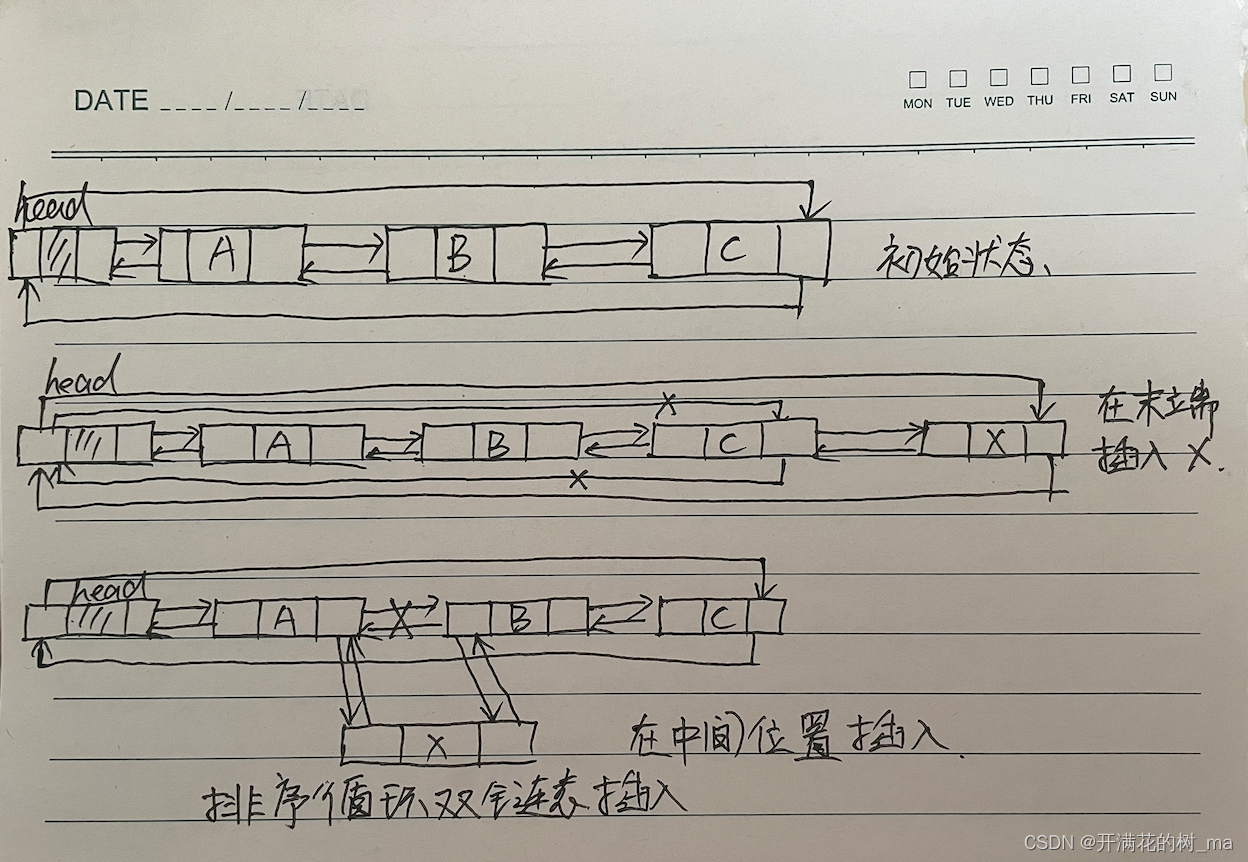 DATE ____/____/____
MON TUE WED THU FRI SAT SUN
head
A B C 初始状态、
head
A B C X
在末端
插入 X.
X
X
head
A X B C
X
在中间位置插入.
排序循环双链表插入
CSDN @开满花的树_ma